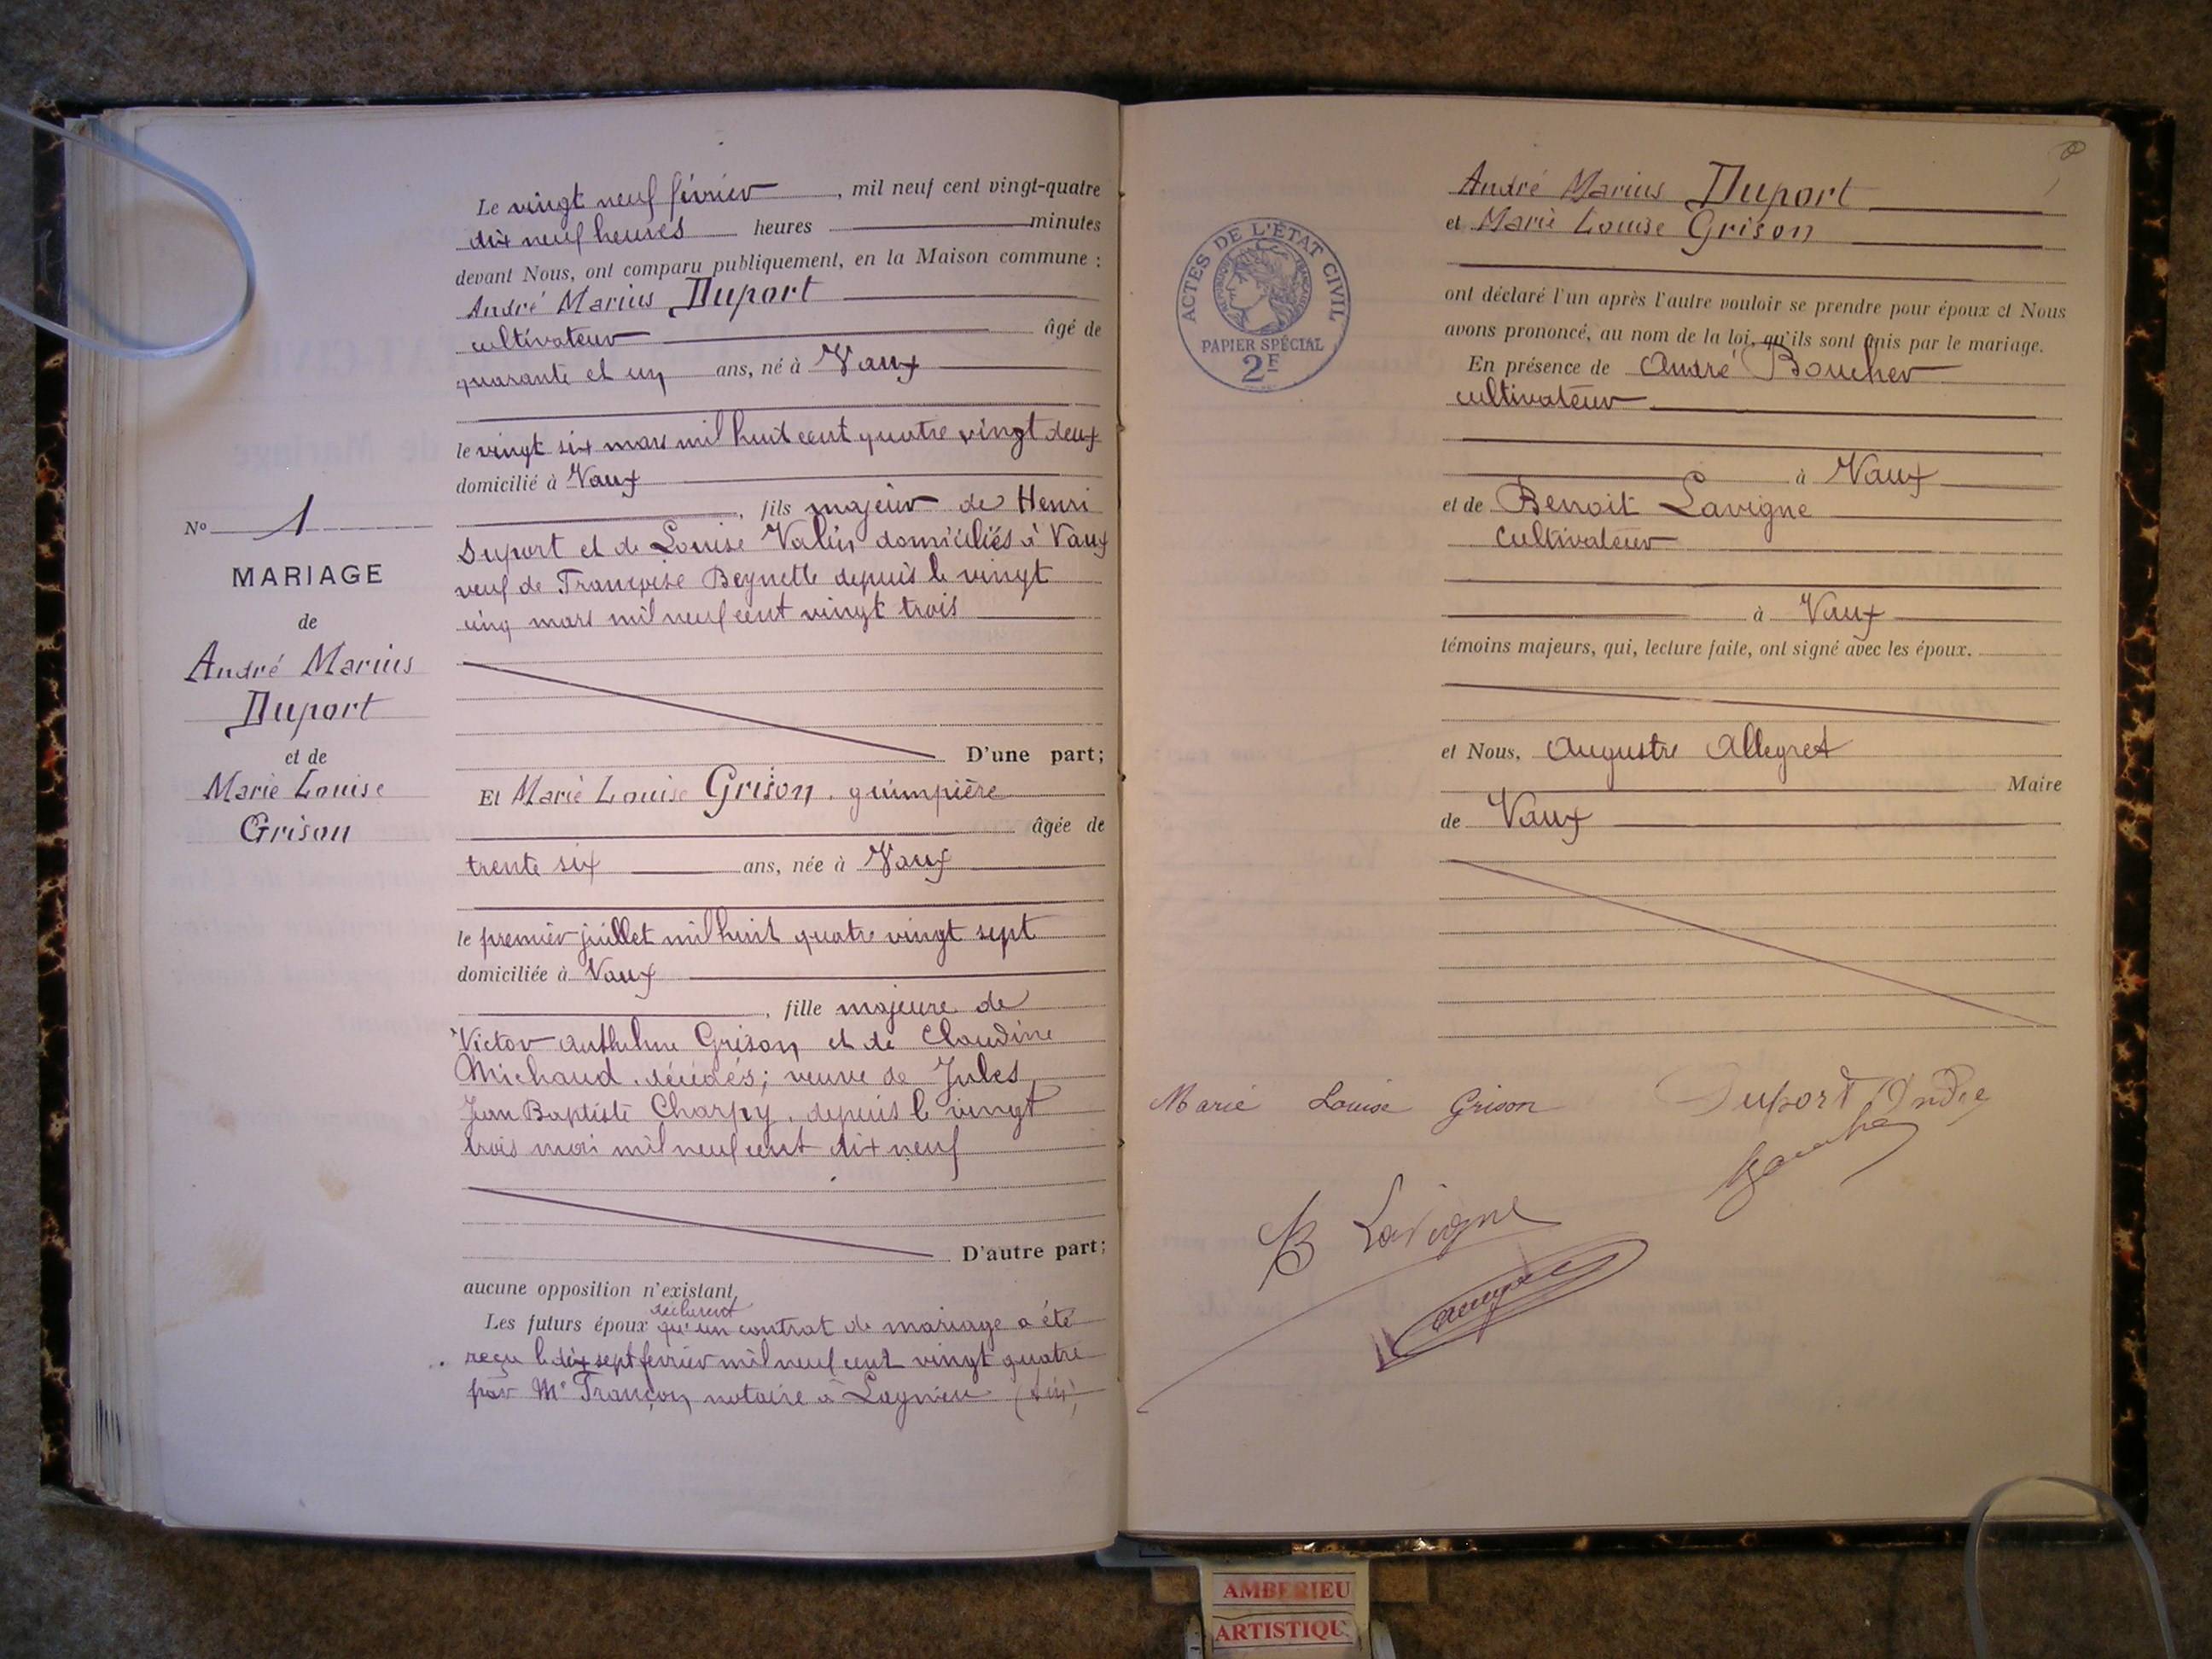 Le vingt neuf février, mil neuf cent vingt-quatre
dix neuf heures heures minutes
devant Nous, ont comparu publiquement, en la Maison commune :
André Marius Duport
cultivateur âgé de
quarante et un ans, né à Vaux
le vingt six mars mil huit cent quatre vingt deux
domicilié à Vaux
, fils majeur de Henri
Duport et de Louise Valin domiciliés à Vaux
veuf de Françoise Beynette depuis le vingt
cinq mars mil neuf cent vingt trois
D'une part;
Et Marie Louise Grison, guimpière
âgée de
trente six ans, née à Vaux
le premier juillet mil huit quatre vingt sept
domiciliée à Vaux
, fille majeure de
Victor Anthelme Grison et de Claudine
Michaud, décédés; veuve de Jules
Jean Baptiste Charpy, depuis le vingt
trois mai mil neuf cent dix neuf
D'autre part;
aucune opposition n'existant,
déclarent
Les futurs époux qu'un contrat de mariage a été
reçu le dix sept février mil neuf cent vingt quatre
par Me Françon, notaire à Lagnieu (Ain)
No 1
MARIAGE
de
André Marius
Duport
et de
Marie Louise
Grison
ACTES DE L'ÉTAT CIVIL
RÉPUBLIQUE FRANÇAISE
PAPIER SPÉCIAL
2F
André Marius Duport
et Marie Louise Grison
ont déclaré l'un après l'autre vouloir se prendre pour époux et Nous
avons prononcé, au nom de la loi, qu'ils sont unis par le mariage.
En présence de André Boucher
cultivateur
à Vaux
et de Benoit Lavigne
cultivateur
à Vaux
témoins majeurs, qui, lecture faite, ont signé avec les époux.
et Nous, Auguste Allegret
Maire
de Vaux
Marie Louise Grison Duport André
B Lavigne
AMBERIEU
ARTISTIQU